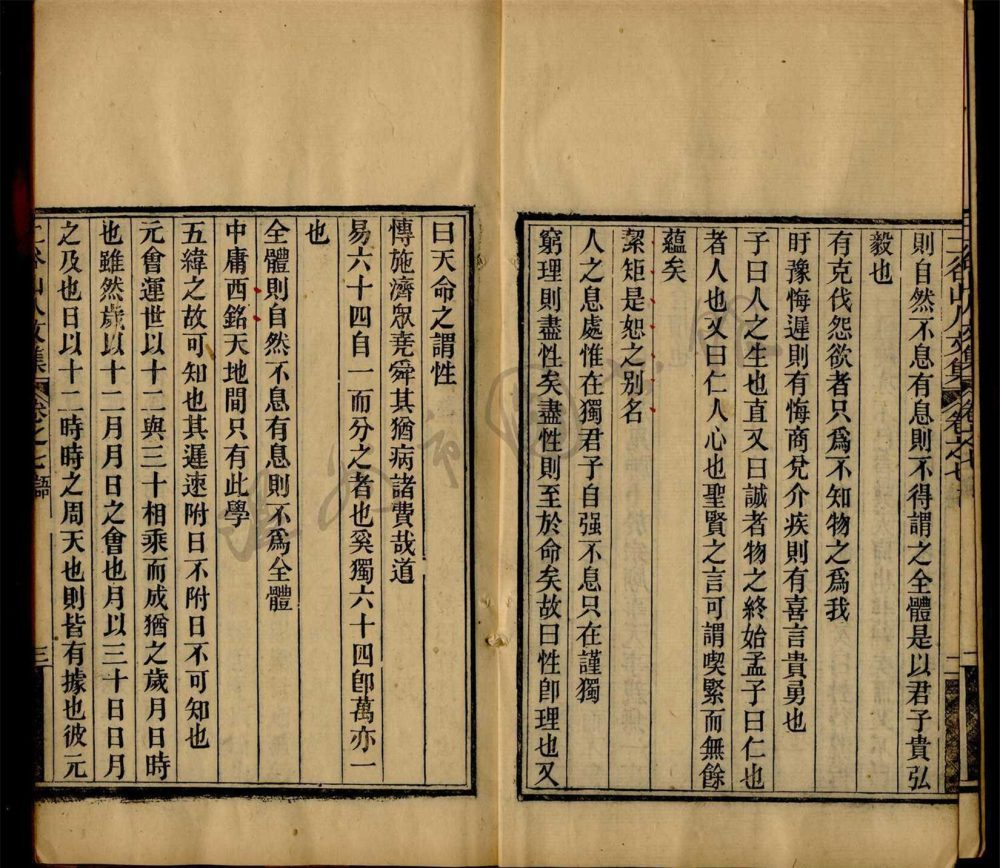 二谷山人文集 卷之七 二
則自然不息有息則不得謂之全體是以君子貴弘
毅也
有克伐怨欲者只爲不知物之爲我
盱豫悔遲則有悔商兌介疾則有喜言貴勇也
子曰人之生也直又曰誠者物之終始孟子曰仁也
者人也又曰仁人心也聖賢之言可謂喫緊而無餘
蘊矣
絜矩是恕之别名
人之息處惟在獨君子自强不息只在謹獨
窮理則盡性矣盡性則至於命矣故曰性卽理也又
曰天命之謂性
博施濟眾堯舜其猶病諸費哉道
易六十四自一而分之者也奚獨六十四卽萬亦一
也
全體則自然不息有息則不爲全體
中庸西銘天地間只有此學
五緯之故可知也其遲速附日不附日不可知也
元會運世以十二與三十相乘而成猶之歲月日時
也雖然歲以十二月月日之會也月以三十日日月
之及也日以十二時時之周天也則皆有據也彼元
二谷山人文集 卷之七 語 三